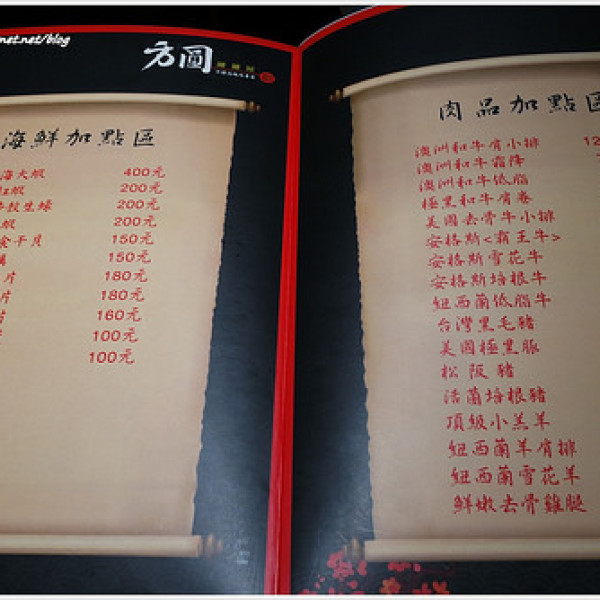 net.net/blog
方圓
海鮮加點區
海大蝦 400元
紅蝦 200元
生蠔 200元
蝦 200元
干貝 150元
150元
片 180元
片 180元
160元
100元
100元
肉品加點區
澳洲和牛肩小排 12
澳洲和牛霜降
澳洲和牛低脂
極黑和牛肩卷
美國去骨牛小排
安格斯<霸王牛>
安格斯雪花牛
安格斯培根牛
紐西蘭低脂牛
台灣黑毛豬
美國極黑豚
松阪豬
活菌培根豬
頂級小羔羊
紐西蘭羊肩排
紐西蘭雪花羊
鮮嫩去骨雞腿